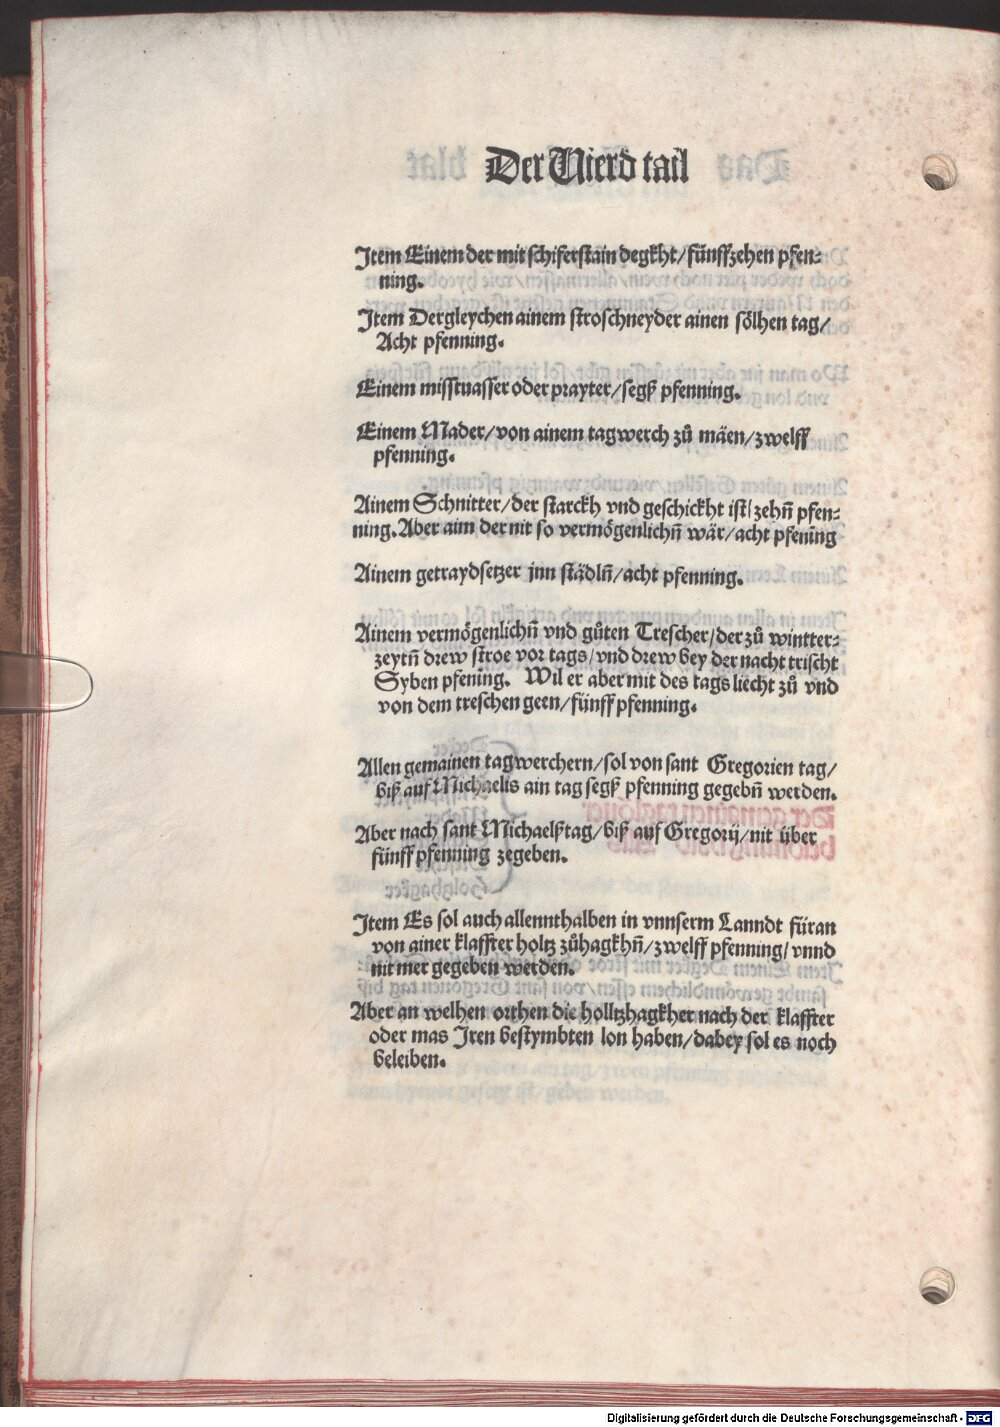 Der Vierd tail
Item Einem der mit schiferstain degkht/fünffzehen pfen⸗
ning.
Item Dergleychen ainem stroschneyder ainen sölhen tag/
Acht pfenning.
Einem misstuasser oder prayter/segß pfenning.
Einem Mader/von ainem tagwerch zů mäen/zwelff
pfenning.
Ainem Schnitter/der starckh vnd geschickht ist/zehn̄ pfen⸗
ning. Aber aim der nit so vermögenlichn̄ wär/acht pfenīng
Ainem getraydsetzer jnn städln̄/acht pfenning.
Ainem vermögenlichn̄ vnd gůten Trescher/der zů wintter⸗
zeytn̄ drew stroe vor tags/vnd drew bey der nacht trischt
Syben pfenīng. Wil er aber mit des tags liecht zů vnd
von dem treschen geen/fünff pfenning.
Allen gemainen tagwerchern/sol von sant Gregorien tag/
biß auf Michaelis ain tag segß pfenning gegebn̄ werden.
Aber nach sant Michaelßtag/biß auf Gregorij/nit über
fünff pfenning zegeben.
Item Es sol auch allennthalben in vnnserm Lanndt füran
von ainer klaffter holtz zůhagkhn̄/zwelff pfenning/vnnd
nit mer gegeben werden.
Aber an welhen orthen die holltzhagkher nach der klaffter
oder mas Iren bestymbten lon haben/dabey sol es noch
beleiben.
Digitalisierung gefördert durch die Deutsche Forschungsgemeinschaft - DFG